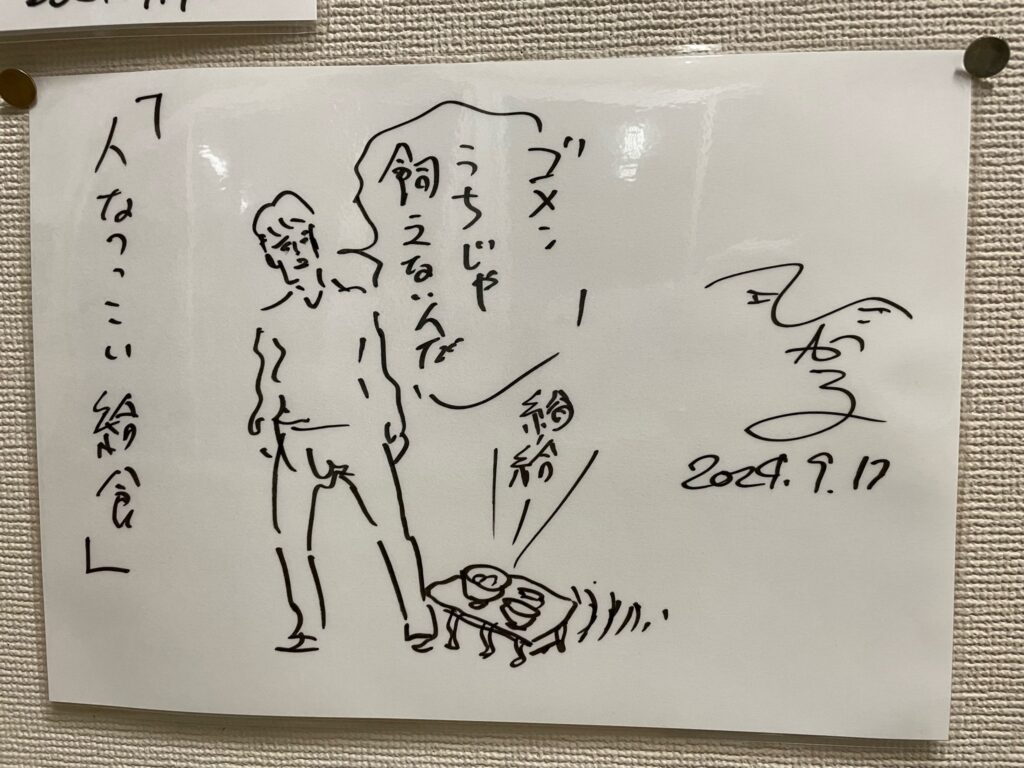 「人なつっこい給食」
ゴメン
うちじゃ
飼えないんだ
給給
2024.9.17